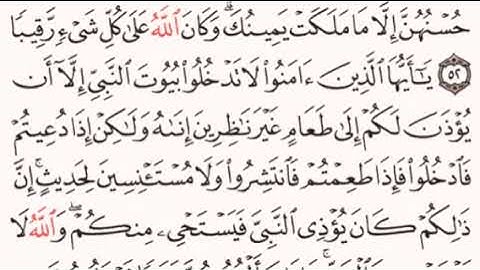 حُسۡنُهُنَّ إِلَّا مَا مَلَكَتۡ يَمِينُكَۗ وَكَانَ ٱللَّهُ عَلَىٰ كُلِّ شَيۡءٖ رَّقِيبٗا
٥٢ يَٰٓأَيُّهَا ٱلَّذِينَ ءَامَنُواْ لَا تَدۡخُلُواْ بُيُوتَ ٱلنَّبِيِّ إِلَّآ أَن
يُؤۡذَنَ لَكُمۡ إِلَىٰ طَعَامٍ غَيۡرَ نَٰظِرِينَ إِنَىٰهُ وَلَٰكِنۡ إِذَا دُعِيتُمۡ
فَٱدۡخُلُواْ فَإِذَا طَعِمۡتُمۡ فَٱنتَشِرُواْ وَلَا مُسۡتَـٔۡنِسِينَ لِحَدِيثٍۚ إِنَّ
ذَٰلِكُمۡ كَانَ يُؤۡذِي ٱلنَّبِيَّ فَيَسۡتَحۡيِۦ مِنكُمۡۖ وَٱللَّهُ لَا